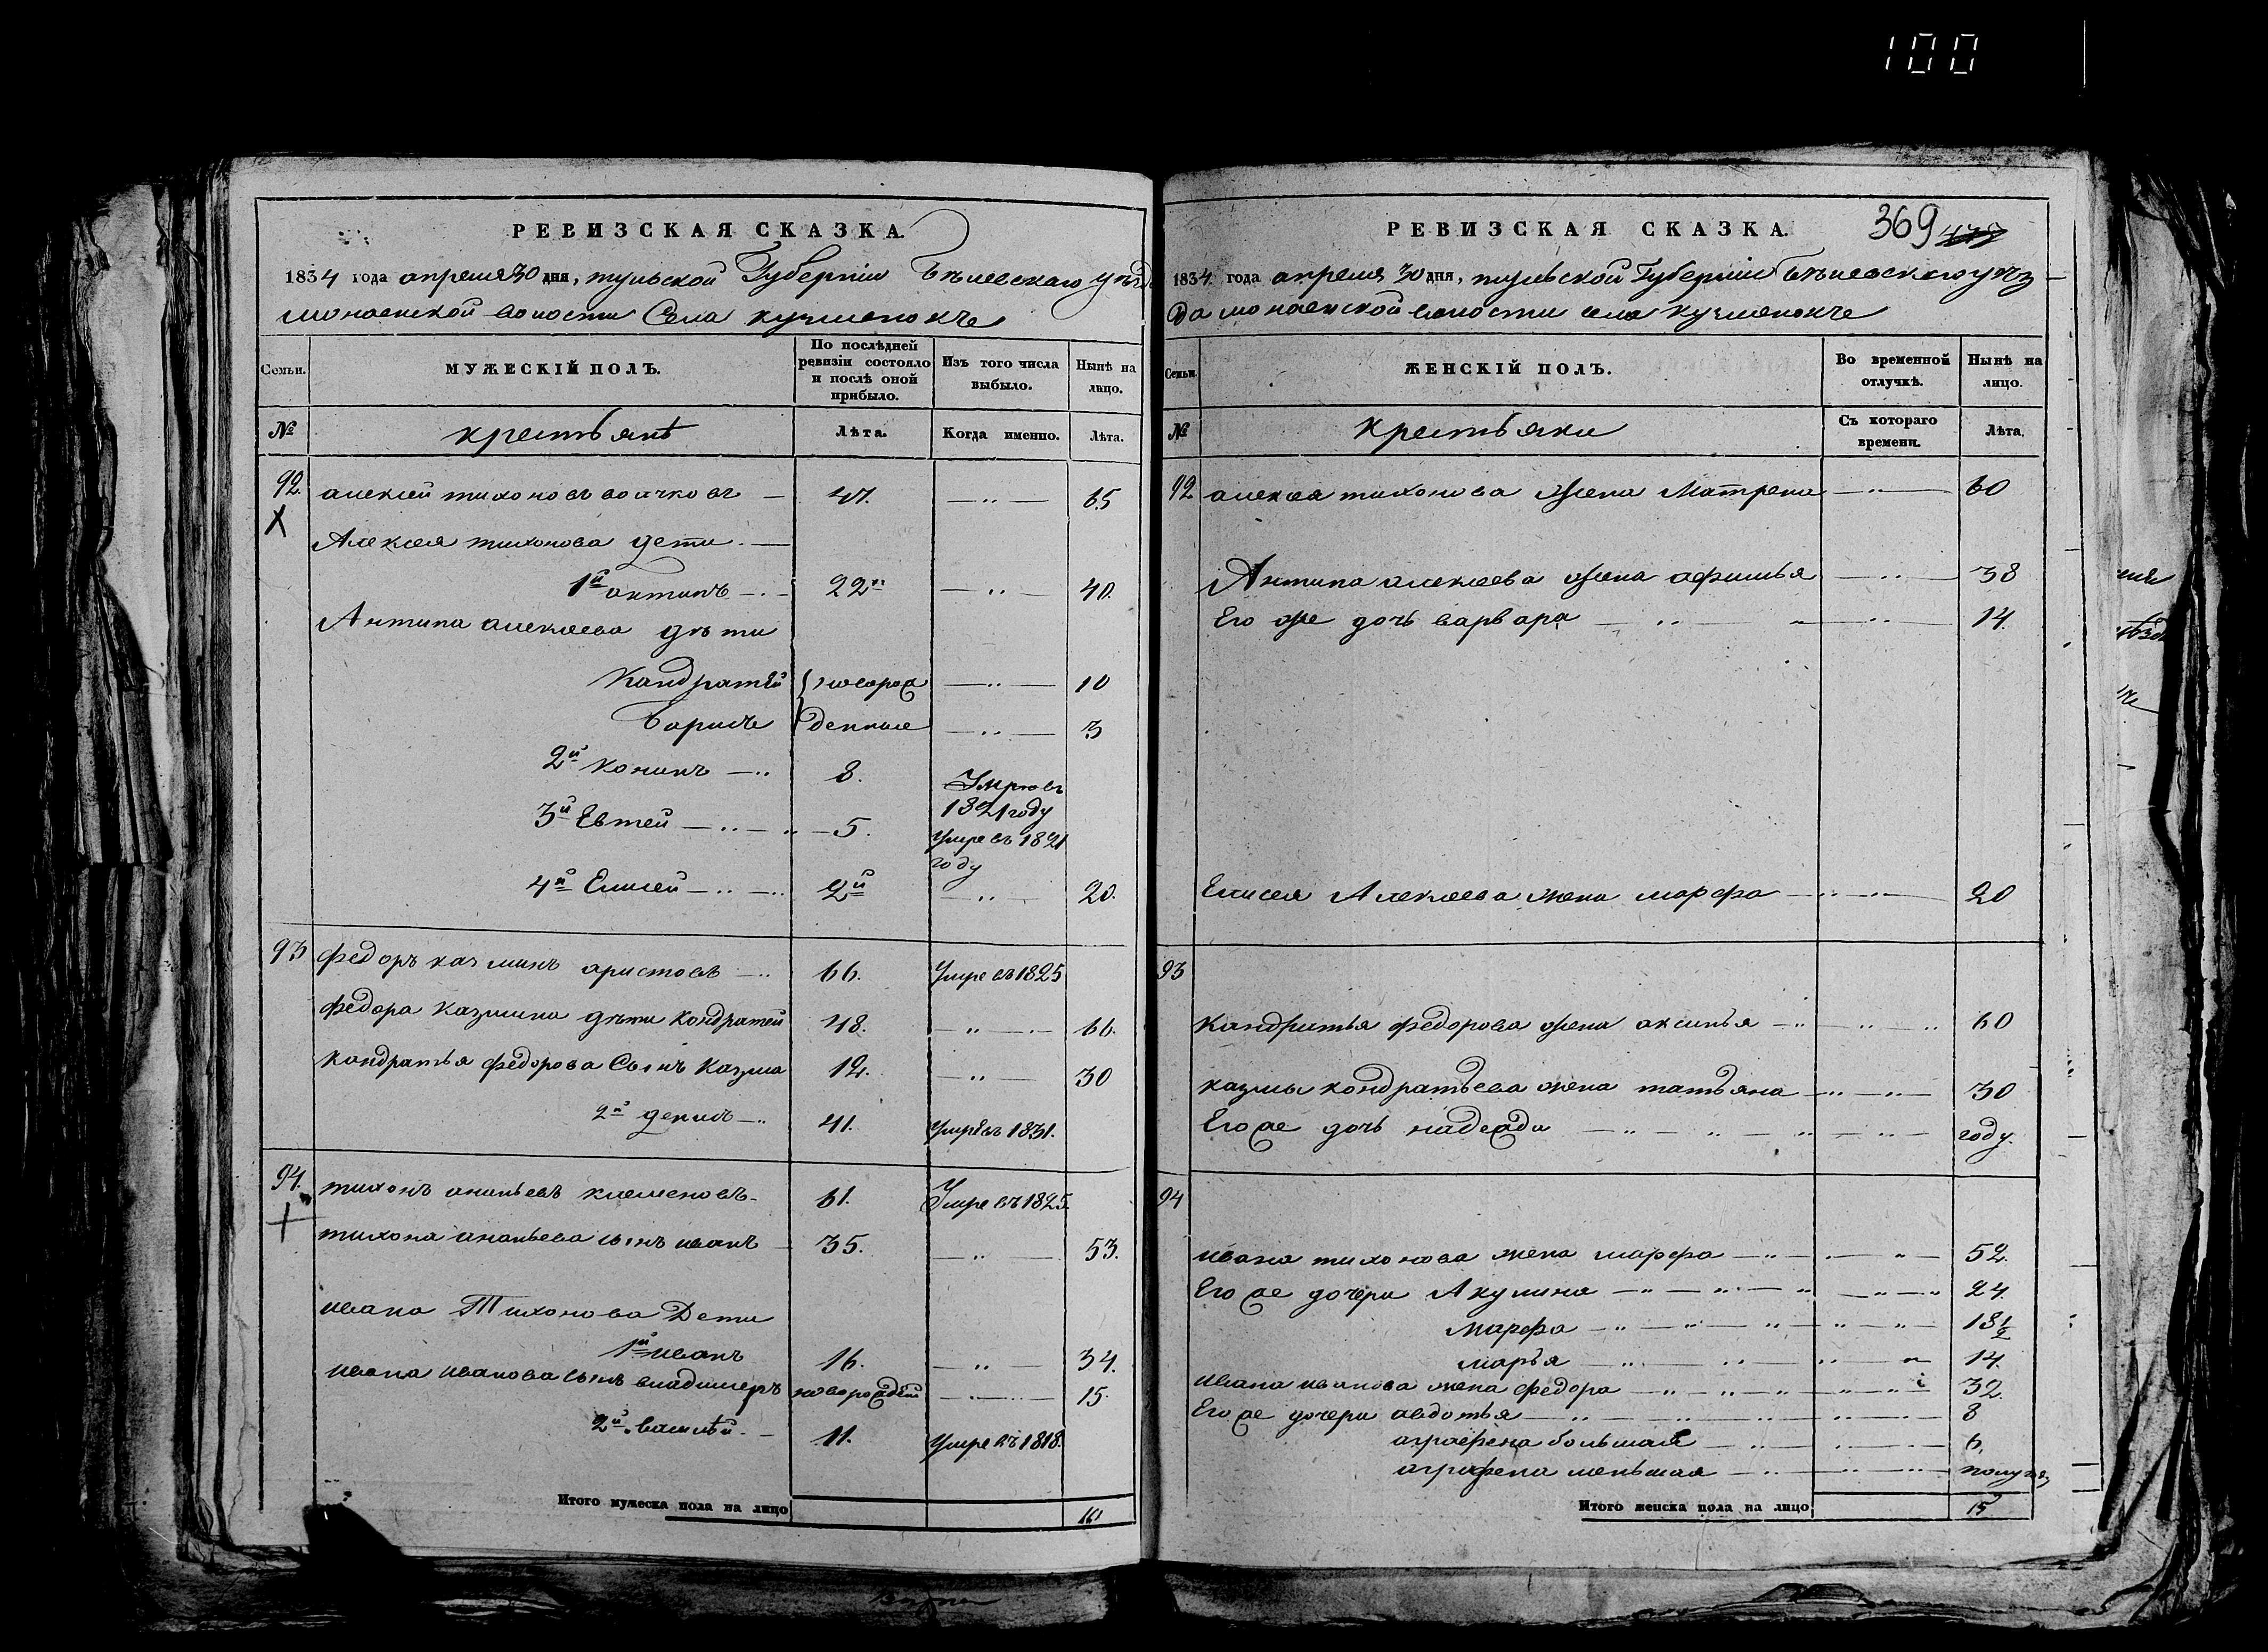 100
РЕВИЗСКАЯ СКАЗКА.
1834 года апреля 30 дня, тульской Губернiи Бѣлевскаго уѣзд
монаенской волости Села кузменокъ
Семьи.
МУЖЕСКIЙ ПОЛЪ.
По послѣдней ревизiи состояло и послѣ оной прибыло.
Изъ того числа выбыло.
Нынѣ на лицо.
№
крестьянѣ
Лѣта.
Когда именно.
Лѣта.
92 алексей тихоновъ волчковъ 47. 65
Х
Алексея тихонова дети.
1й антипъ 22 40.
Антипа алексеева дѣти
Кандратей новорож 10
Борисъ денные 3
2й Конинъ 8. Умре въ 1821 году
3й Евтей 5. умре въ 1821 году
4й Елисей 2й 20.
93 федоръ казминъ аристовъ 66. Умре въ 1825
федора казмина дѣти кондратей 48. 66.
кондратья федорова сынъ казма 12. 30
2й денисъ 41. умре въ 1831.
94. тихонъ ананьевъ клеменовъ 61. Умре въ 1825.
тихона ананьева сынъ иванъ 35. 53.
ивана Тихонова Дети
1й иванъ 16. 34.
ивана иванова сынъ владимеръ новорожден 15.
2й василѣй. 11. умре въ 1818.
Итого мужеска пола на лицо 10
РЕВИЗСКАЯ СКАЗКА. 369
1834. года апреля 30 дня, тульской Губернiи Бѣлевскаго уѣз
да монаенской волости села кузменокъ
Семьи.
ЖЕНСКIЙ ПОЛЪ.
Во временной отлучкѣ.
Нынѣ на лицо.
№
крестьяки
Съ котораго времени.
Лѣта.
92 алексея тихонова жена Матрена 60
Антипа алексеева жена афимья 38
Его же дочь варвара 14.
Елисея Алексеева жена марфа 20
93
Кандратья федорова жена аксинья 60
казмы кондратьева жена татьяна 30
Его же дочь надежда году.
94
ивана тихонова жена марфа 52.
Его же дочери Акулина 24.
Марфа 18 1/2
марья 14.
ивана иванова жена федора 32.
Его же дочери авдотья 8
аграфена большая 6,
аграфена меньшая
Итого женска пола на лицо 15